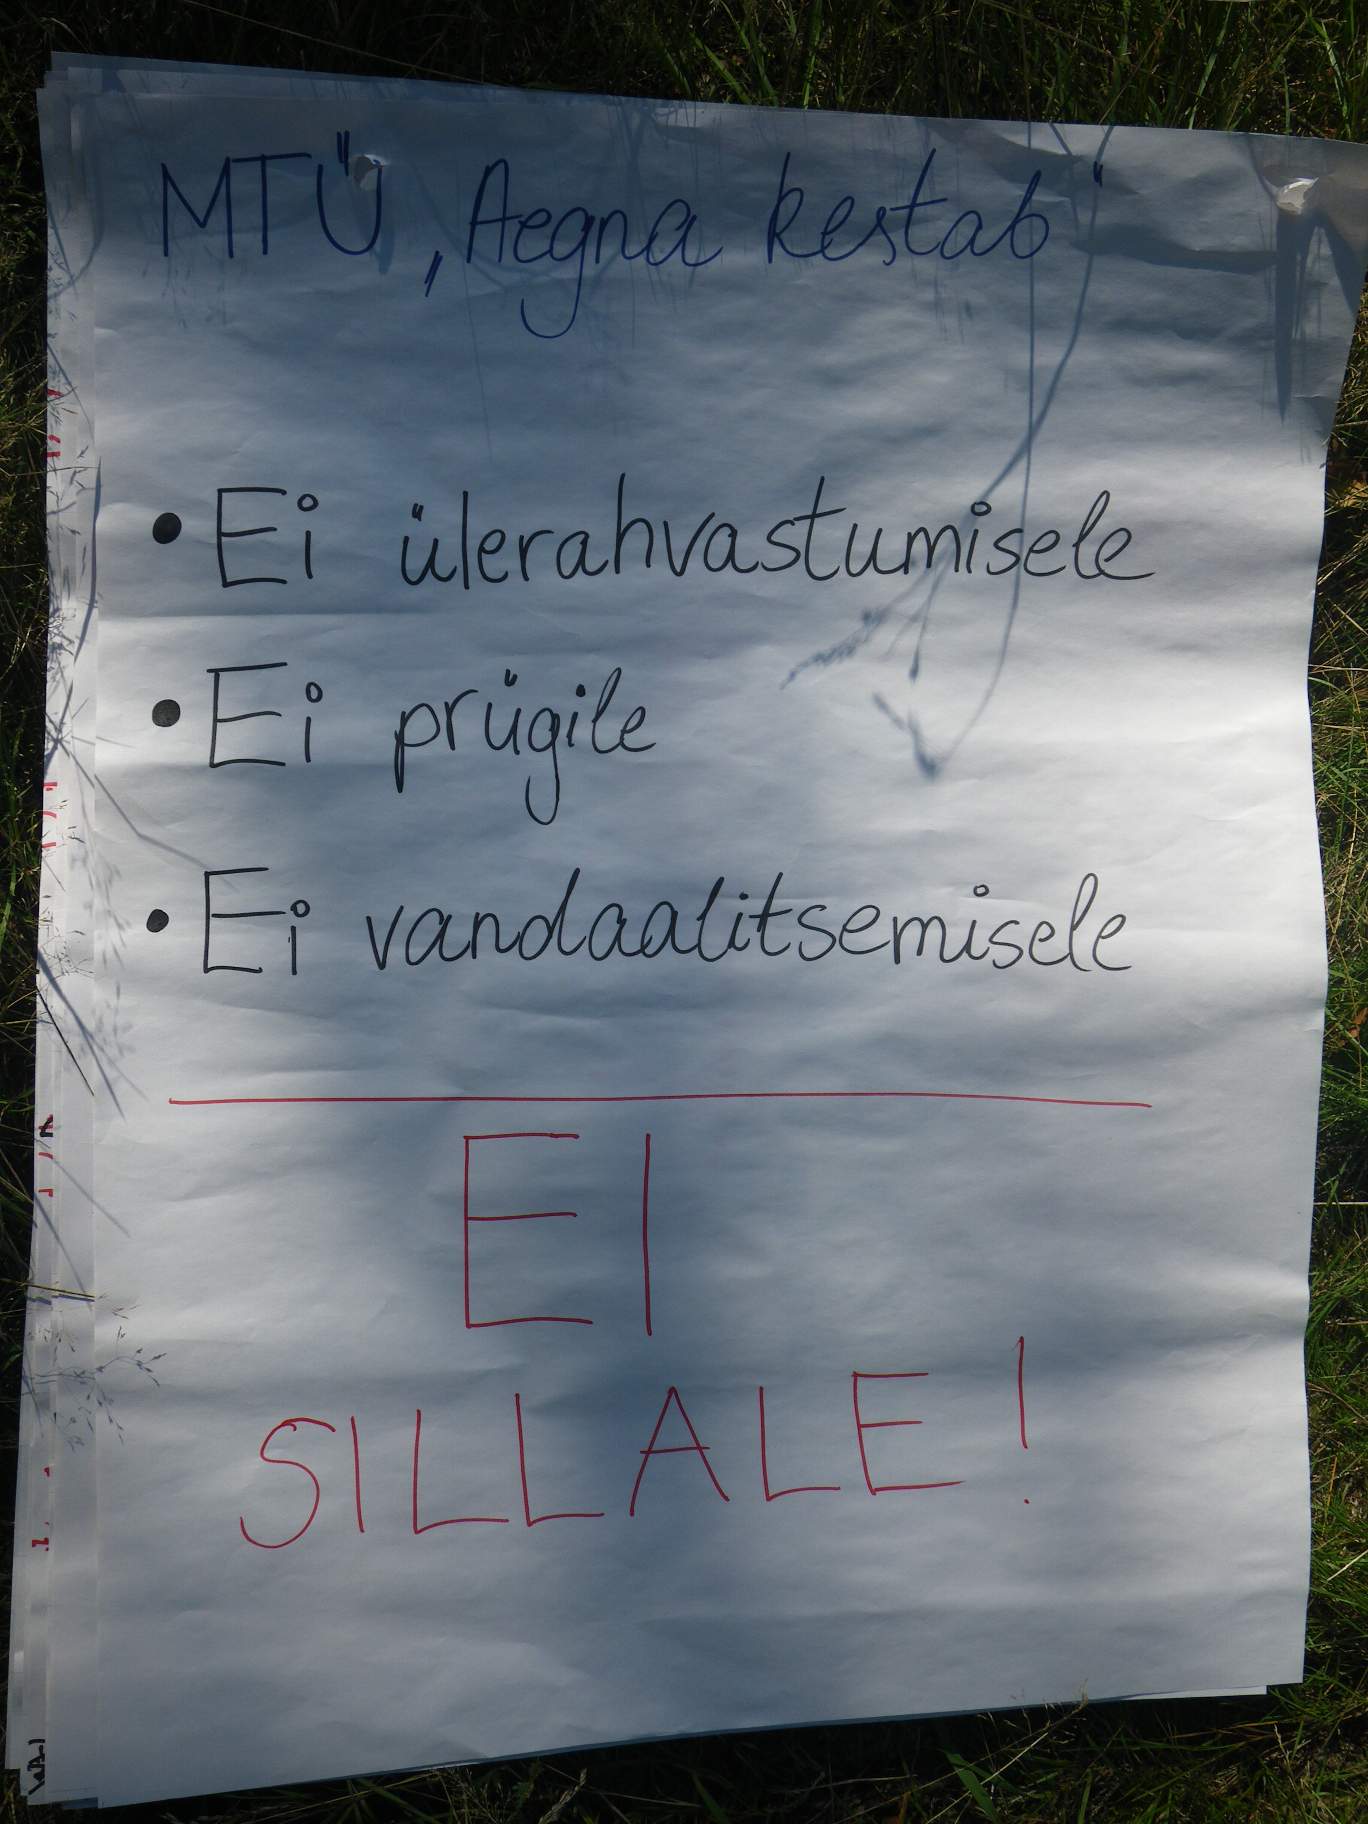 MTÜ „Aegna kestab"
• Ei ülerahvastumisele
• Ei prügile
• Ei vandaalitsemisele
EI
SILLALE!